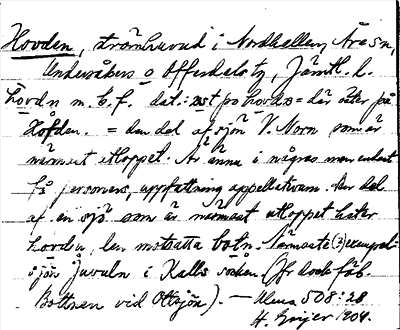 Hovden, strömhuvud i Nordhallen, Åre sn,
Undersåkers o Offerdals tg, Jämtl. l.
hovdn m. b. f. dat: = där öster på
Höfden. = den del af sjön V. Norn som är
närmast utloppet. Är ännu i några men endast
få personers, uppfattning appellativum. Den del
af en sjö som är närmast utloppet heter
hovdn, den motsatta botn. Närmaste (?) exempel:
sjön Juveln i Kalls socken (Jfr dock föb.
Bottnen vid Ottsjön). — Ulma 508:28
H. Geijer 1904.